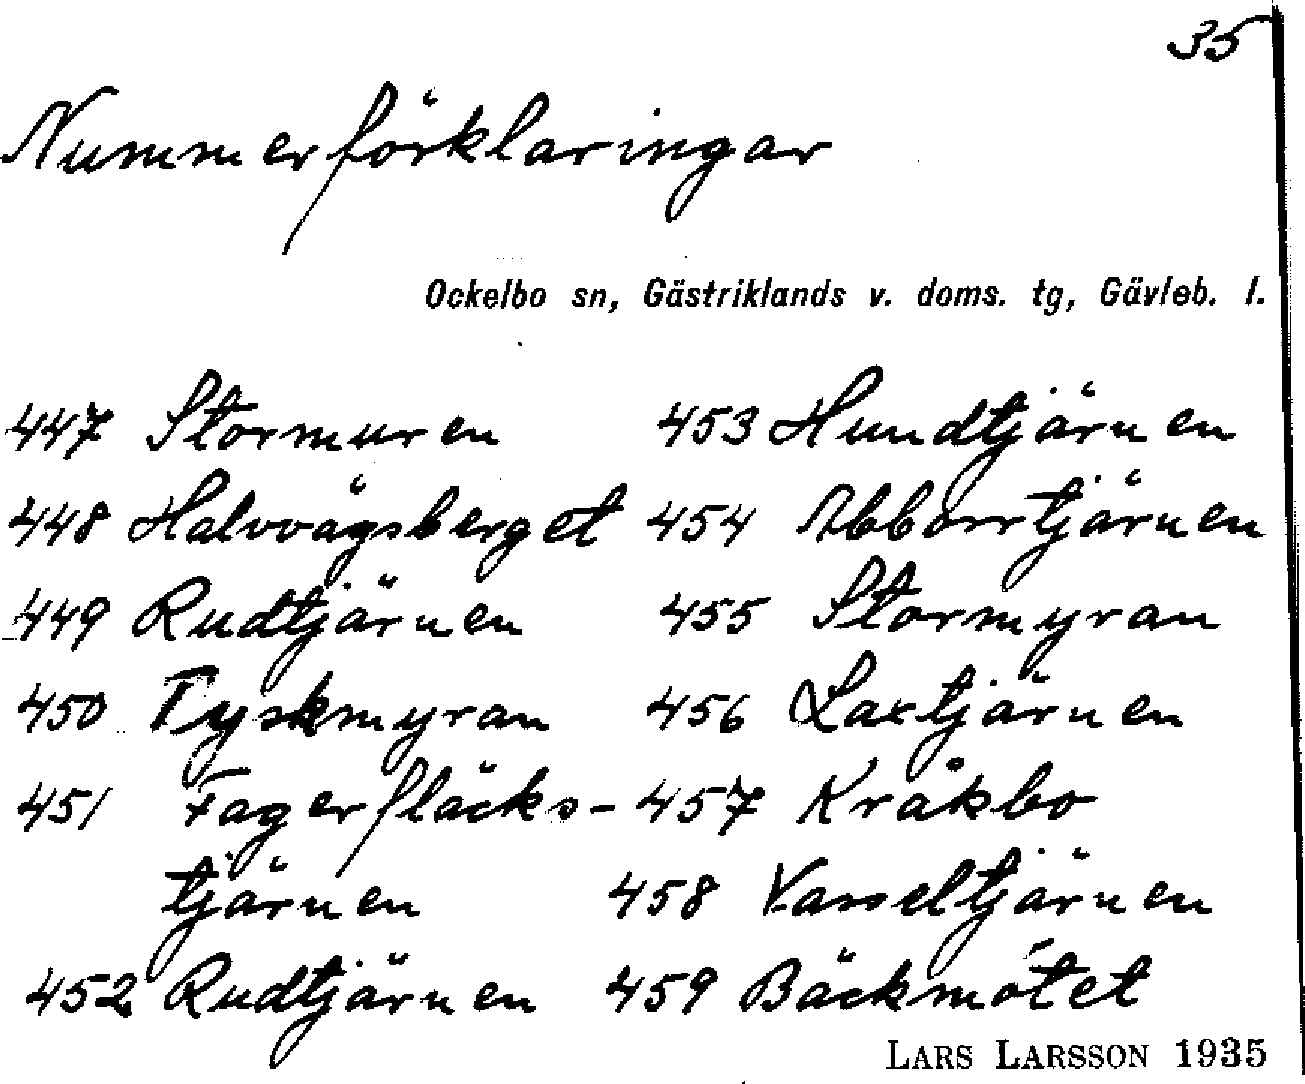 35
Nummerförklaringar
Ockelbo sn, Gästriklands v. doms. tg, Gävleb. l.
447 Stormuren
448 Halvvågsberget
449 Rudtjärnen
450 Tyskmyran
451 Fagerfläcks-
tjärnen
452 Rudtjärnen
453 Hundtjärnen
454 Abborrtjärnen
455 Stormyran
456 Laxtjärnen
457 Kråkbo
458 Vasseltjärnen
459 Bäckmötet
LARS LARSSON 1935